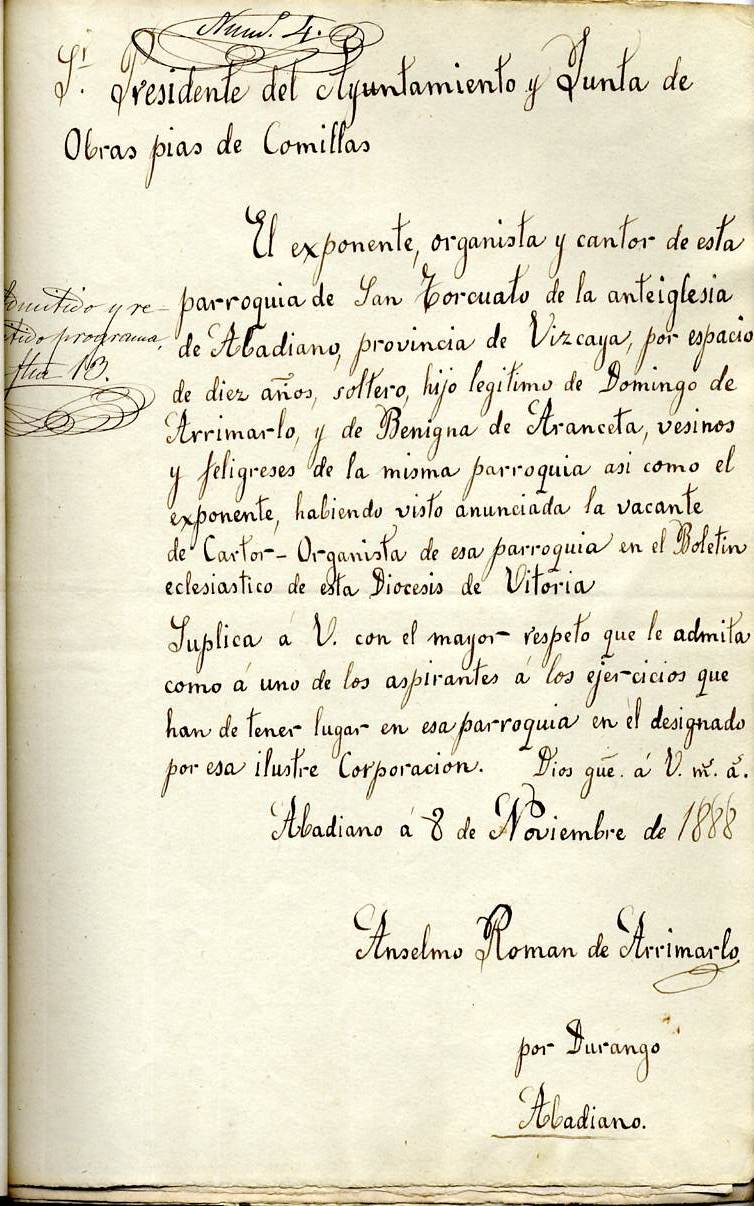 Num. 4.
Sr. Presidente del Ayuntamiento y Junta de
Obras pias de Comillas
El exponente, organista y cantor de esta
parroquia de San Torcuato de la anteiglesia
de Abadiano, provincia de Vizcaya, por espacio
de diez años, soltero, hijo legitimo de Domingo de
Arrimarlo, y de Benigna de Aranceta, vesinos
y feligreses de la misma parroquia asi como el
exponente, habiendo visto anunciada la vacante
de Cartor-Organista de esa parroquia en el Boletin
eclesiastico de esta Diocesis de Vitoria
Suplica á V. con el mayor respeto que le admita
como á uno de los aspirantes á los ejercicios que
han de tener lugar en esa parroquia en el designado
por esa ilustre Corporacion. Dios gūe. á V. ms. as.
Abadiano á 8 de Noviembre de 1888
Anselmo Roman de Arrimarlo
por Durango
Abadiano.
y re-
programa,
13.